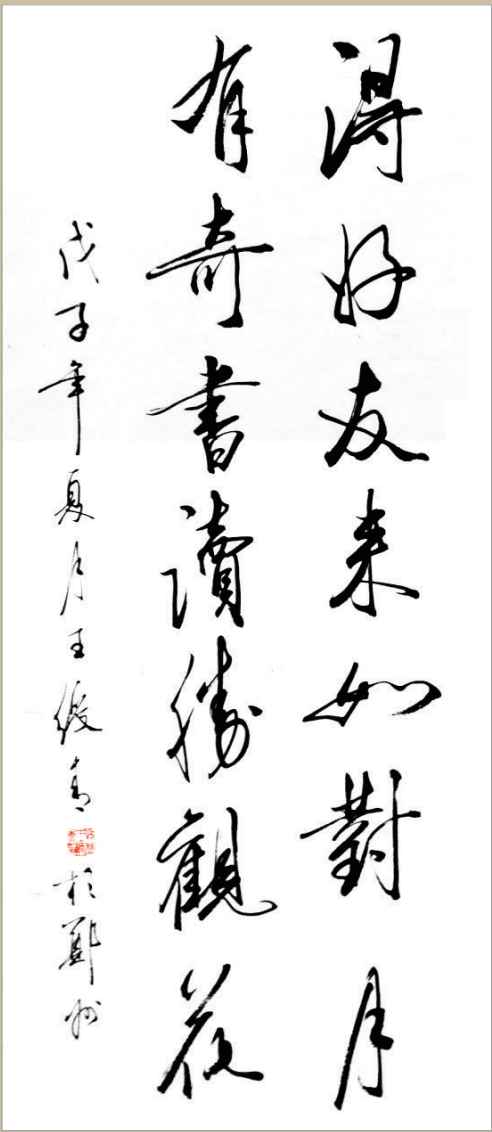 得好友来如對月
有奇書讀勝觀花
戊子年夏月王 於鄭州